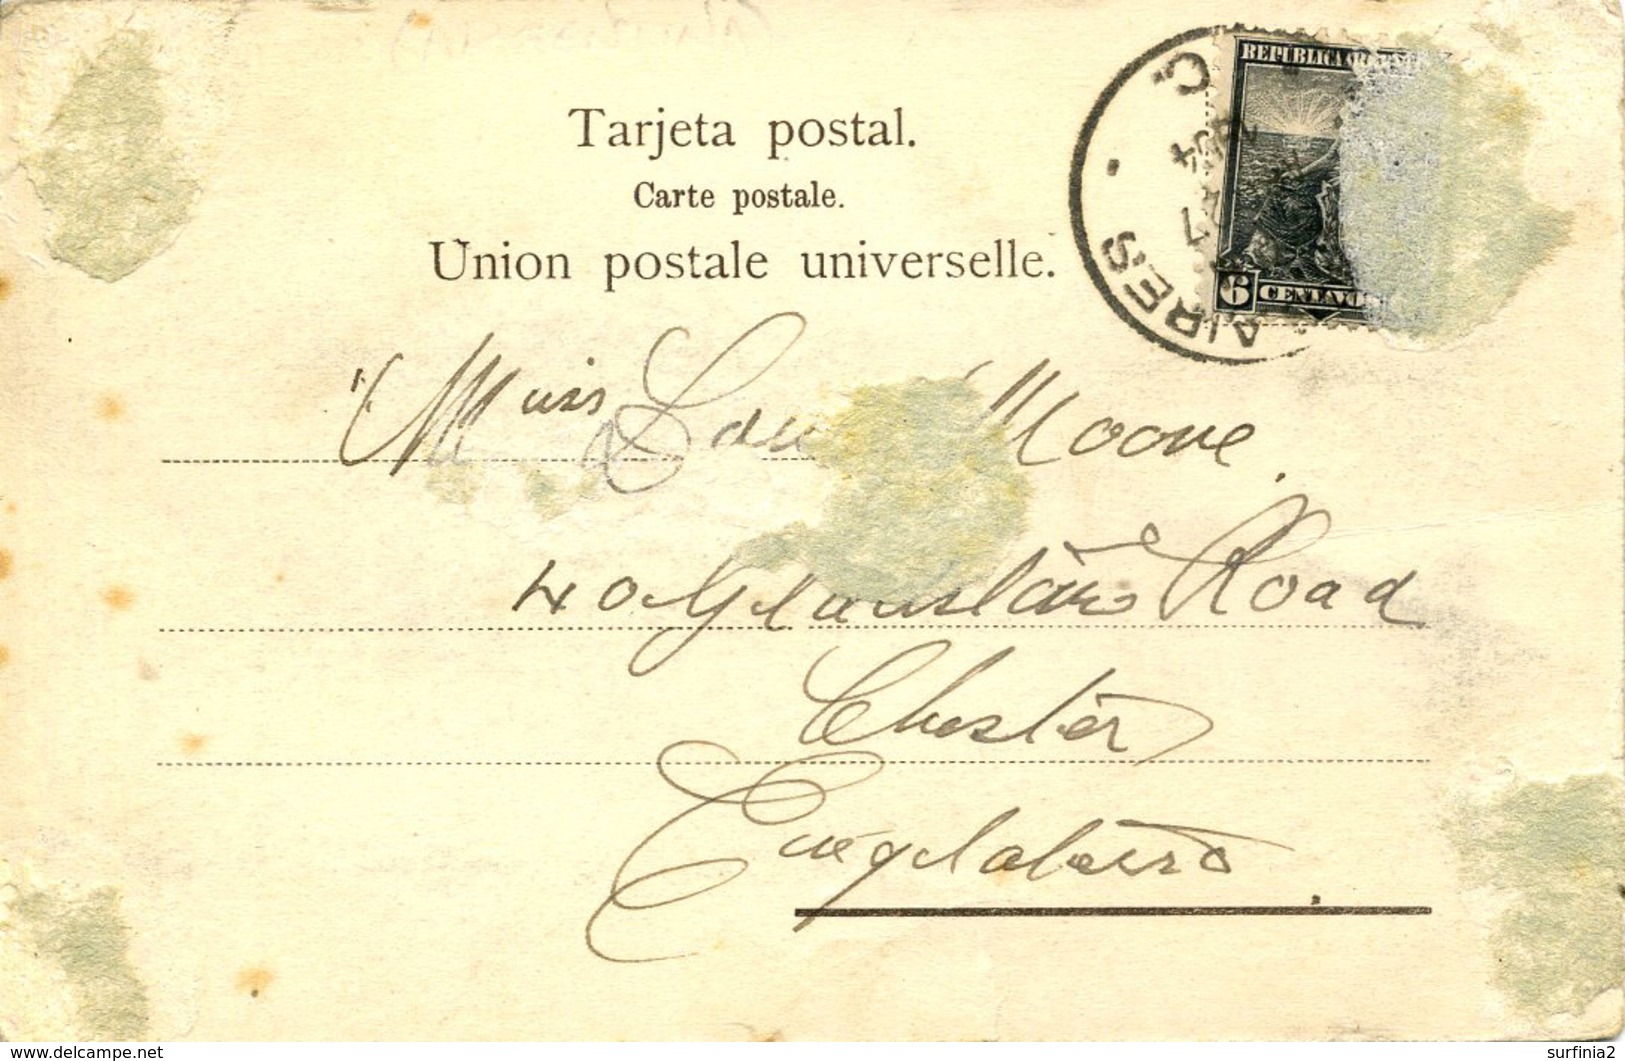 Tarjeta postal.
Carte postale.
Union postale universelle.
REPUBLICA
6 CENTAVOS
AIRES
Miss Moore.
40 Road
Chester
Englaterra.
surfinia2
www.delcampe.net